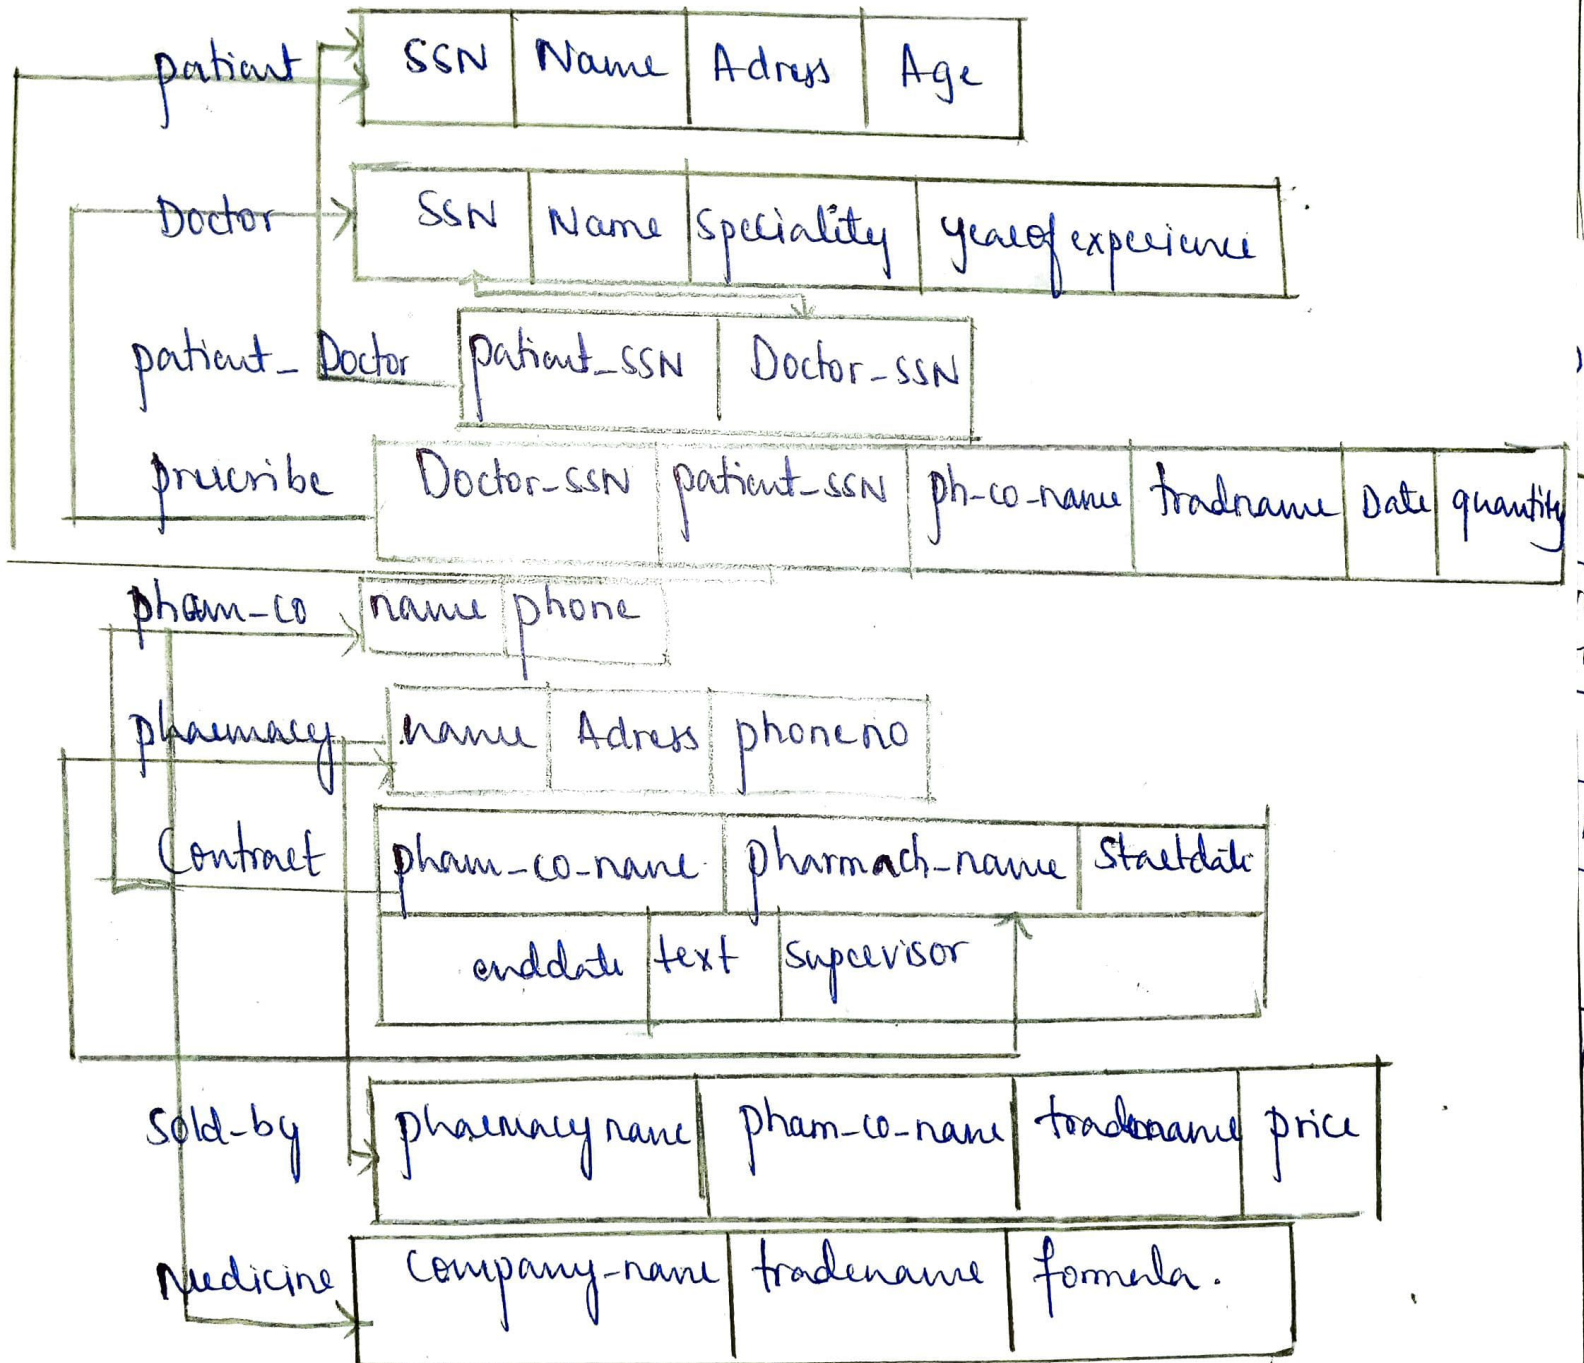 patient SSN Name Adress Age
Doctor SSN Name Speciality yearof experience
patient_Doctor patient_SSN Doctor-SSN
prescribe Doctor-SSN patient-SSN ph-co-name tradname Date quantity
pham-co name phone
pharmacy name Adress phoneno
Contract pham-co-name pharmach-name Startdate
enddate text supervisor
Sold-by pharmacy name pham-co-name tradename price
Medicine Company-name tradename formula.